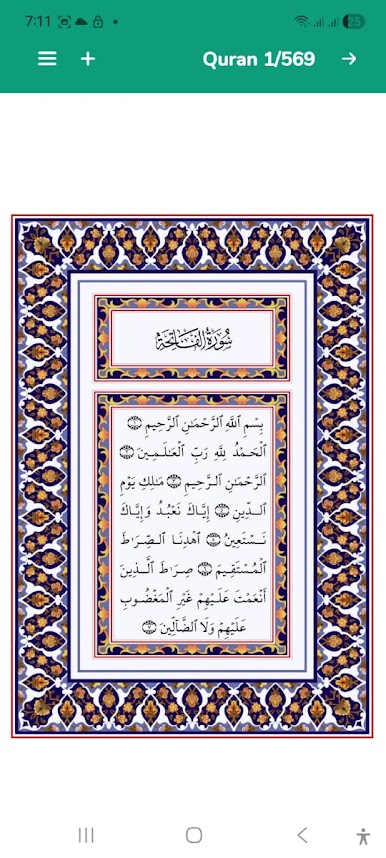 7:11
25
Quran 1/569
سُورَةُ الْفَاتِحَةِ
بِسْمِ ٱللَّهِ ٱلرَّحْمَٰنِ ٱلرَّحِيمِ ١
ٱلْحَمْدُ لِلَّهِ رَبِّ ٱلْعَٰلَمِينَ ٢
ٱلرَّحْمَٰنِ ٱلرَّحِيمِ ٣ مَٰلِكِ يَوْمِ
ٱلدِّينِ ٤ إِيَّاكَ نَعْبُدُ وَإِيَّاكَ
نَسْتَعِينُ ٥ ٱهْدِنَا ٱلصِّرَٰطَ
ٱلْمُسْتَقِيمَ ٦ صِرَٰطَ ٱلَّذِينَ
أَنْعَمْتَ عَلَيْهِمْ غَيْرِ ٱلْمَغْضُوبِ
عَلَيْهِمْ وَلَا ٱلضَّآلِّينَ ٧